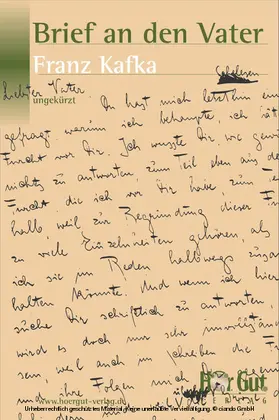 Brief an den Vater
Franz Kafka
Schelesen
Liebster Vater
ungekürzt
Du hast mich letzthin einmal
gefragt, warum ich behaupte, ich hätte
Furcht vor Dir. Ich wusste Dir, wie gewöhnlich,
nichts zu antworten, zum Teil eben aus der
Furcht die ich vor Dir habe, zum Teil des-
halb weil zur Begründung dieser Furcht
zu viele Einzelnheiten gehören, als dass
ich sie im Reden halbwegs zusammen-
halten könnte. Und wenn ich hier ver-
suche Dir schriftlich zu antworten
wird es doch nur sehr unvollständig
sein weil auch im Schreiben die Furcht
und ihre Folgen mich
www.hoergut-verlag.de
Hör Gut
VERLAG
Urheberrechtlich geschütztes Material. Keine unerlaubte Vervielfältigung. © ciando GmbH